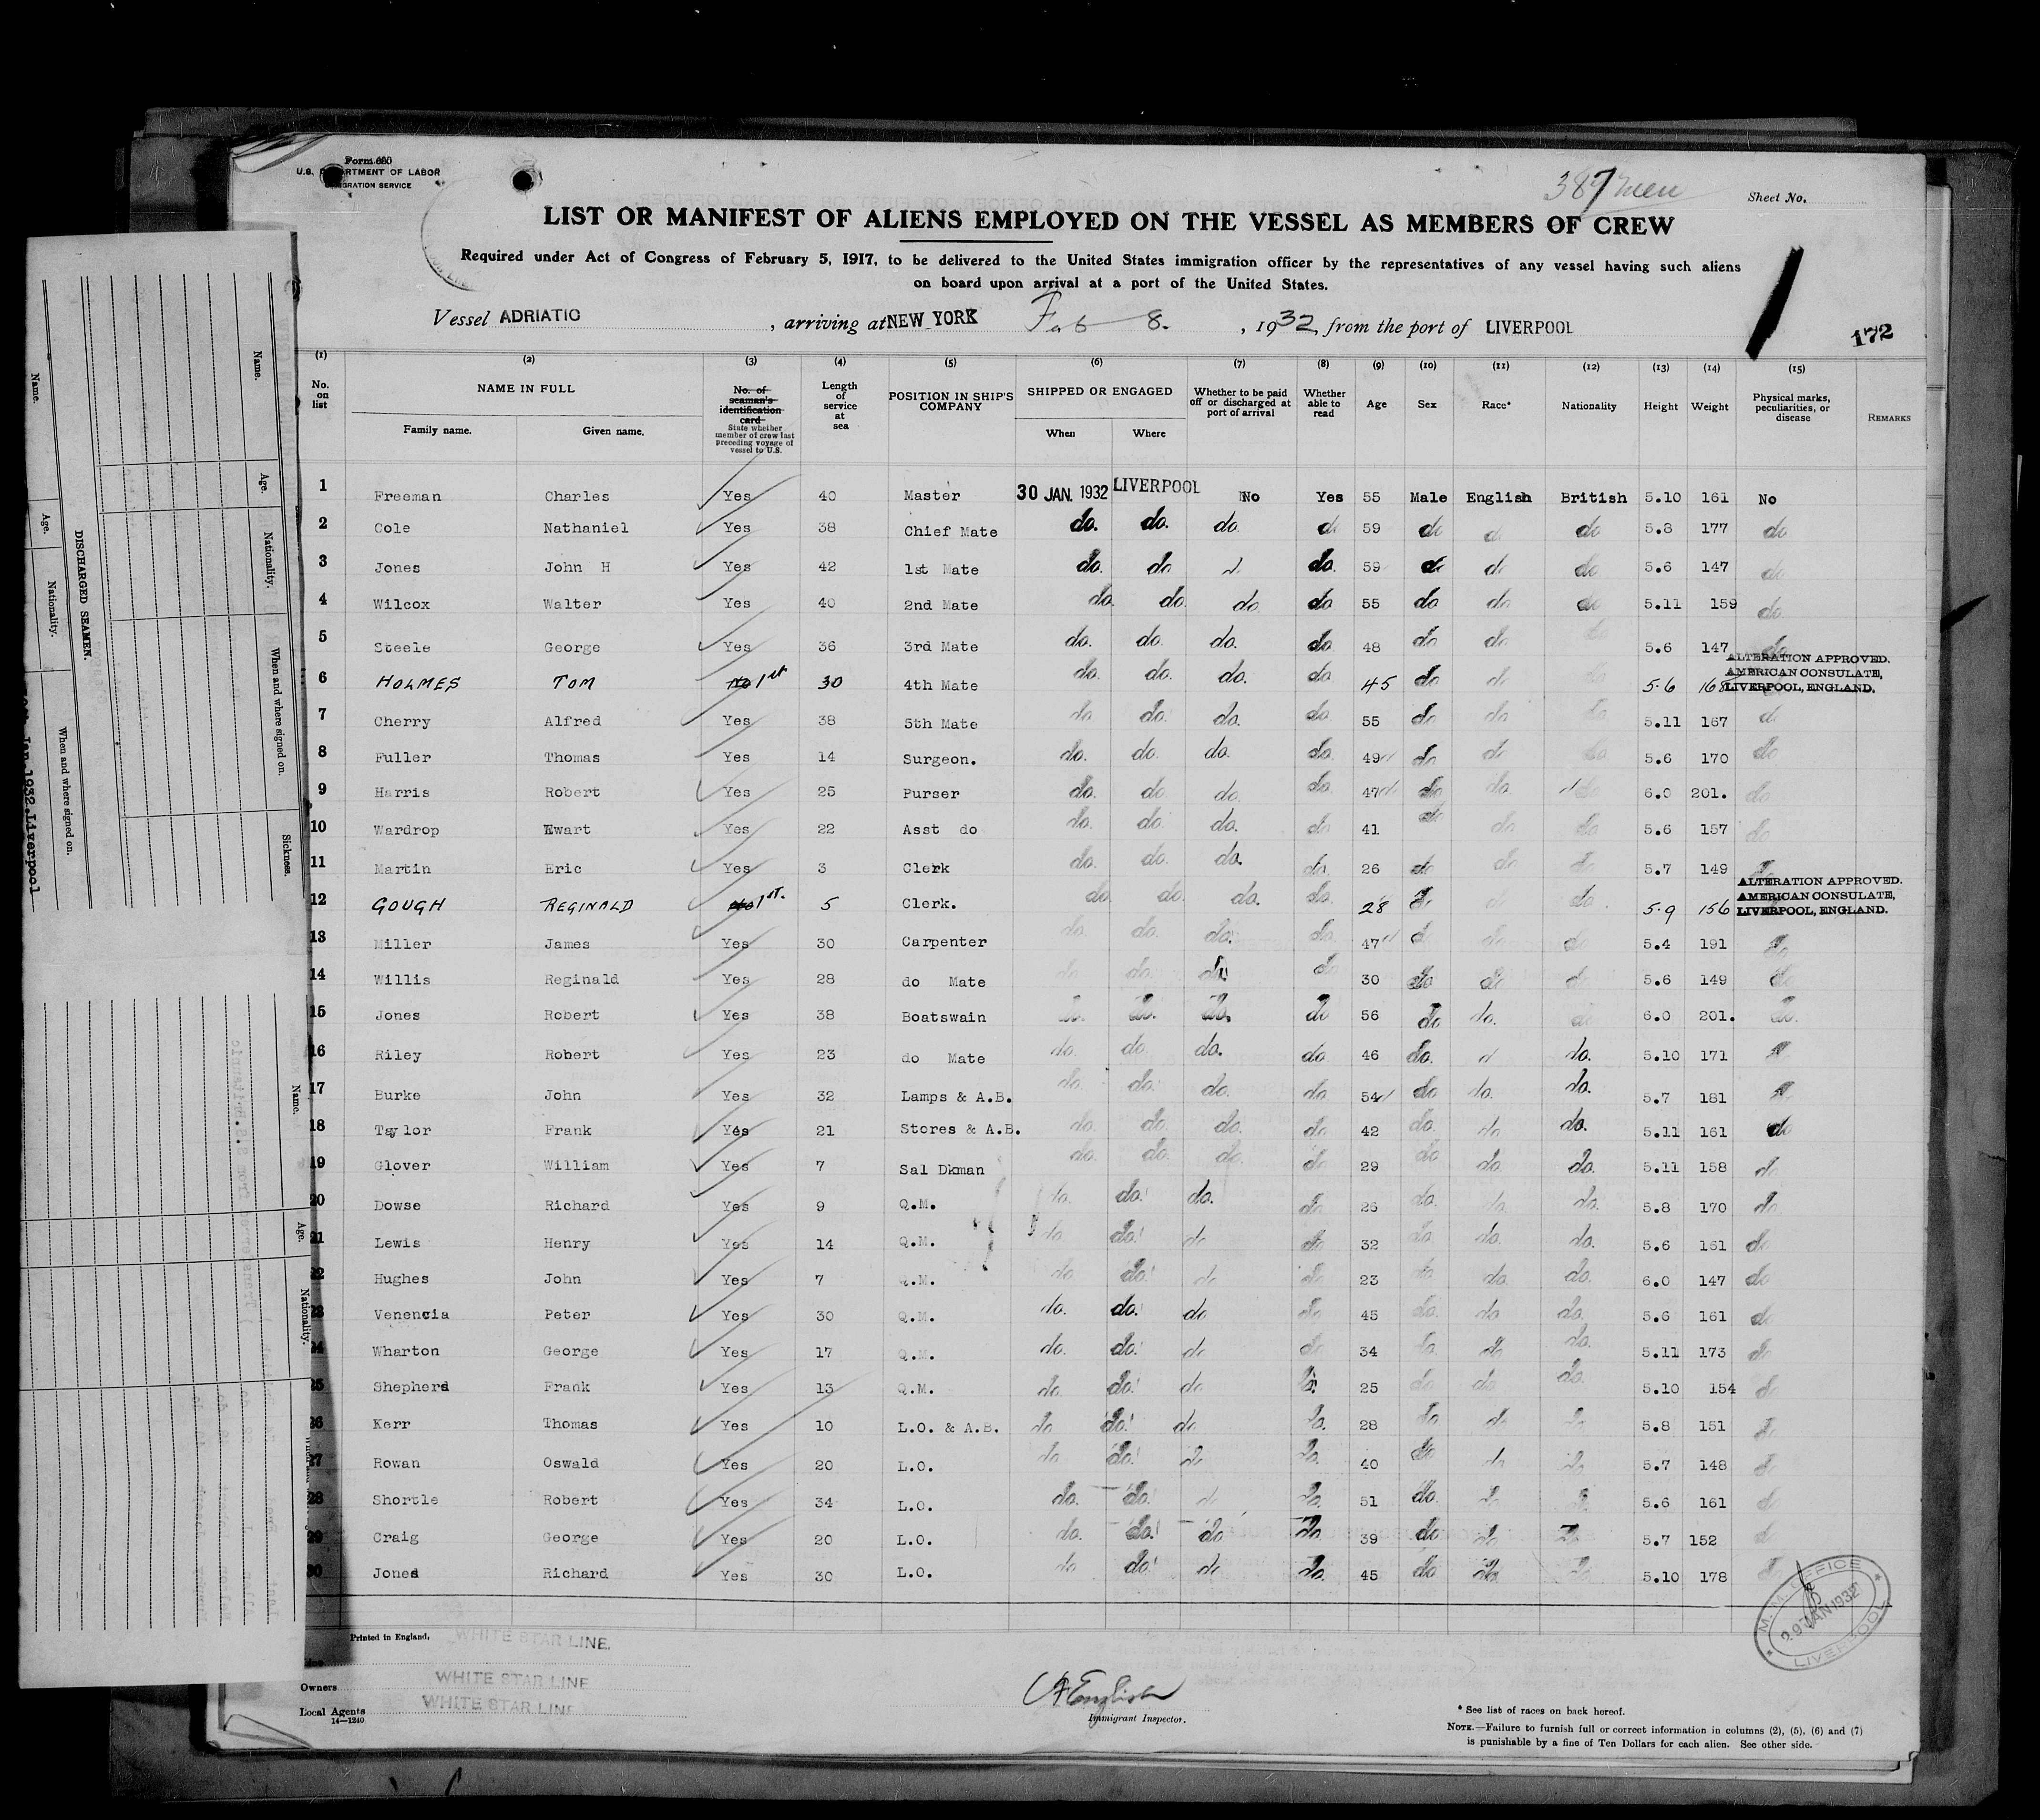 Form 680
U.S. DEPARTMENT OF LABOR
IMMIGRATION SERVICE
387 men
Sheet No.
LIST OR MANIFEST OF ALIENS EMPLOYED ON THE VESSEL AS MEMBERS OF CREW
Required under Act of Congress of February 5, 1917, to be delivered to the United States immigration officer by the representatives of any vessel having such aliens
on board upon arrival at a port of the United States.
Vessel ADRIATIC, arriving at NEW YORK Feb 8., 1932, from the port of LIVERPOOL
172
(1) (2) (3) (4) (5) (6) (7) (8) (9) (10) (11) (12) (13) (14) (15)
No. on list NAME IN FULL Family name. Given name. No. of seaman's identification card State whether member of crew last preceding voyage of vessel to U.S. Length of service at sea POSITION IN SHIP'S COMPANY SHIPPED OR ENGAGED When Where Whether to be paid off or discharged at port of arrival Whether able to read Age Sex Race* Nationality Height Weight Physical marks, peculiarities, or disease REMARKS
1 Freeman Charles Yes 40 Master 30 JAN. 1932 LIVERPOOL No Yes 55 Male English British 5.10 161 No
2 Cole Nathaniel Yes 38 Chief Mate do. do. do. do 59 do do do 5.8 177 do
3 Jones John H Yes 42 1st Mate do. do do do. 59 do do do 5.6 147 do
4 Wilcox Walter Yes 40 2nd Mate do. do. do. do 55 do do do 5.11 159 do.
5 Steele George Yes 36 3rd Mate do. do. do. do. 48 do do do 5.6 147 do
6 HOLMES TOM no 1st 30 4th Mate do. do. do. do 45 do do do 5.6 168 ALTERATION APPROVED. AMERICAN CONSULATE, LIVERPOOL, ENGLAND.
7 Cherry Alfred Yes 38 5th Mate do. do. do. do. 55 do do do 5.11 167 do
8 Fuller Thomas Yes 14 Surgeon. do. do. do. do. 49 do do do 5.6 170 do
9 Harris Robert Yes 25 Purser do. do. do. do. 47 do do do 6.0 201. do
10 Wardrop Ewart Yes 22 Asst do do. do. do. do 41 do do do 5.6 157 do
11 Martin Eric Yes 3 Clerk do. do. do. do. 26 do do do 5.7 149 do
12 GOUGH REGINALD no 1st. 5 Clerk. do. do. do. do. 28 do do do. 5.9 156 ALTERATION APPROVED. AMERICAN CONSULATE, LIVERPOOL, ENGLAND.
13 Miller James Yes 30 Carpenter do. do. do. do 47 do do do 5.4 191 do
14 Willis Reginald Yes 28 do Mate do do. do. do 30 do do do 5.6 149 do
15 Jones Robert Yes 38 Boatswain do. do. do. do 56 do do. do 6.0 201. do.
16 Riley Robert Yes 23 do Mate do. do. do. do 46 do. do do. 5.10 171 do
17 Burke John Yes 32 Lamps & A.B. do. do. do. do 54 do do. do. 5.7 181 do
18 Taylor Frank Yes 21 Stores & A.B. do. do. do. do 42 do. do do. 5.11 161 do
19 Glover William Yes 7 Sal Dkman do. do. do. do 29 do do. do. 5.11 158 do
20 Dowse Richard Yes 9 Q.M. do. do. do. do 25 do. do. do. 5.8 170 do
21 Lewis Henry Yes 14 Q.M. do. do. do do 32 do. do. do. 5.6 161 do
22 Hughes John Yes 7 Q.M. do do. do do 23 do do. do. 6.0 147 do
23 Venencia Peter Yes 30 Q.M. do. do. do do 45 do. do do. 5.6 161 do
24 Wharton George Yes 17 Q.M. do. do. do do 34 do. do do. 5.11 173 do
25 Shepherd Frank Yes 13 Q.M. do. do. do do. 25 do do do. 5.10 154 do
26 Kerr Thomas Yes 10 L.O. & A.B. do do. do do. 28 do do do 5.8 151 do
27 Rowan Oswald Yes 20 L.O. do do. do do. 40 do do do 5.7 148 do
28 Shortle Robert Yes 34 L.O. do. do. do do. 51 do do do 5.6 161 do
29 Craig George Yes 20 L.O. do. do. do do 39 do do do 5.7 152 do
30 Jones Richard Yes 30 L.O. do do. do do. 45 do do. do 5.10 178 do
Printed in England. WHITE STAR LINE.
Owners WHITE STAR LINE
Local Agents WHITE STAR LINE
14—1240
Immigrant Inspector.
M. M. OFFICE
29 JAN 1932
LIVERPOOL
* See list of races on back hereof.
NOTE.—Failure to furnish full or correct information in columns (2), (5), (6) and (7)
is punishable by a fine of Ten Dollars for each alien. See other side.
DISCHARGED SEAMEN.
Name. Age. Nationality. When and where signed on. Sickness.
Name. Age. Nationality. When and where signed on.
Jan. 1932. Liverpool
Name. Age. Nationality.